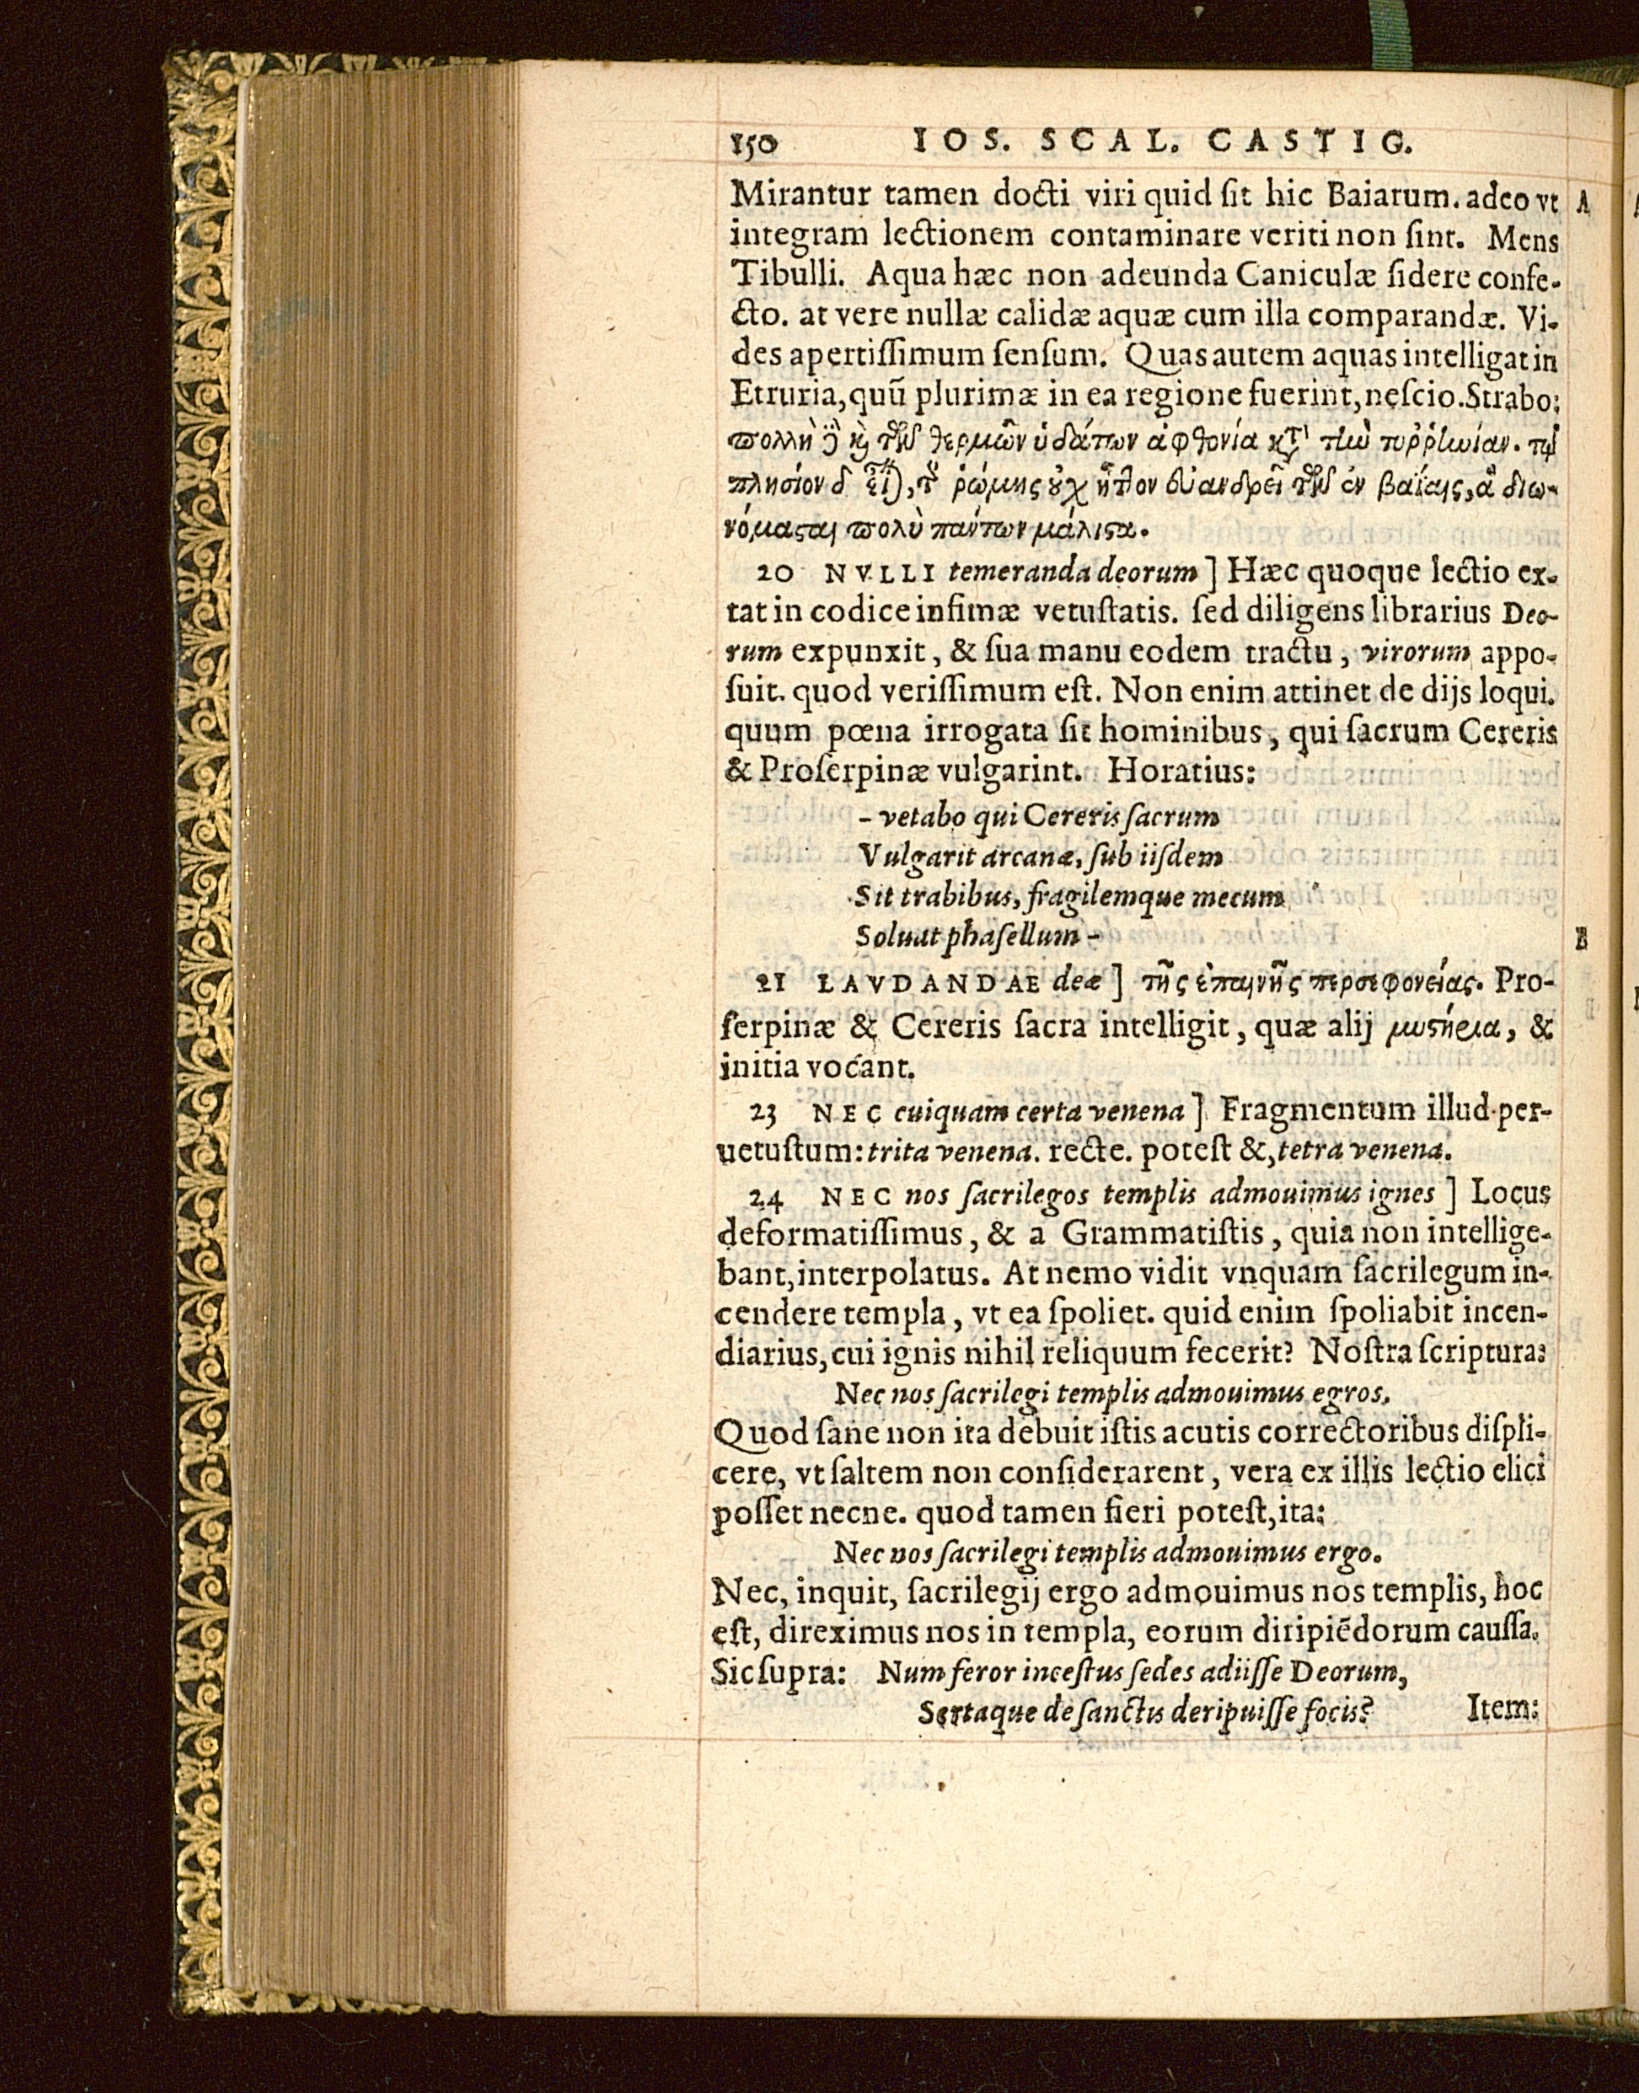 150 IOS. SCAL. CASTIG.
Mirantur tamen docti viri quid ſit hic Baiarum. adeo vt A
integram lectionem contaminare veriti non ſint. Mens
Tibulli. Aqua hæc non adeunda Caniculæ ſidere confe-
cto. at vere nullæ calidæ aquæ cum illa comparandæ. Vi-
des apertiſſimum ſenſum. Quas autem aquas intelligat in
Etruria, quū plurimæ in ea regione fuerint, neſcio. Strabo:
πολλὴ ȣ̓͂ καὶ τῶν θερμῶν ὑδάτων ἀφθονία κατὰ τὴν τυῤῥηνίαν. τῷ
πλησίον δ' εἶναι, τῆς ῥώμης οὐχ ἧττον εὐανδρεῖ τῶν ἐν βαΐαις, ἃ διω-
νόμασται πολὺ πάντων μάλιστα.
20 NVLLI temeranda deorum] Hæc quoque lectio ex-
tat in codice infimæ vetuſtatis. ſed diligens librarius Deo-
rum expunxit, & ſua manu eodem tractu, virorum appo-
ſuit. quod veriſſimum eſt. Non enim attinet de dijs loqui.
quum pœna irrogata ſit hominibus, qui ſacrum Cereris
& Proſerpinæ vulgarint. Horatius:
- vetabo qui Cereris ſacrum
Vulgarit arcanæ, ſub iiſdem
Sit trabibus, fragilemque mecum
Soluat phaſellum - B
21 LAVDANDAE deæ] τῆς ἐπαινῆς περσεφονείας. Pro-
ſerpinæ & Cereris ſacra intelligit, quæ alij μυστήρια, &
initia vocant.
23 NEC cuiquam certa venena] Fragmentum illud per-
uetuſtum: trita venena. recte. poteſt &, tetra venena.
24 NEC nos ſacrilegos templis admouimus ignes] Locus
deformatiſſimus, & a Grammatiſtis, quia non intellige-
bant, interpolatus. At nemo vidit vnquam ſacrilegum in-
cendere templa, vt ea ſpoliet. quid enim ſpoliabit incen-
diarius, cui ignis nihil reliquum fecerit? Noſtra ſcriptura:
Nec nos ſacrilegi templis admouimus egros.
Quod ſane non ita debuit iſtis acutis correctoribus diſpli-
cere, vt ſaltem non conſiderarent, vera ex illis lectio elici
poſſet necne. quod tamen fieri poteſt, ita:
Nec nos ſacrilegi templis admouimus ergo.
Nec, inquit, ſacrilegij ergo admouimus nos templis, hoc
eſt, direximus nos in templa, eorum diripiēdorum cauſſa.
Sic ſupra: Num feror inceſtus ſedes adiiſſe Deorum,
Sertaque de ſanctis deripuiſſe focis? Item: